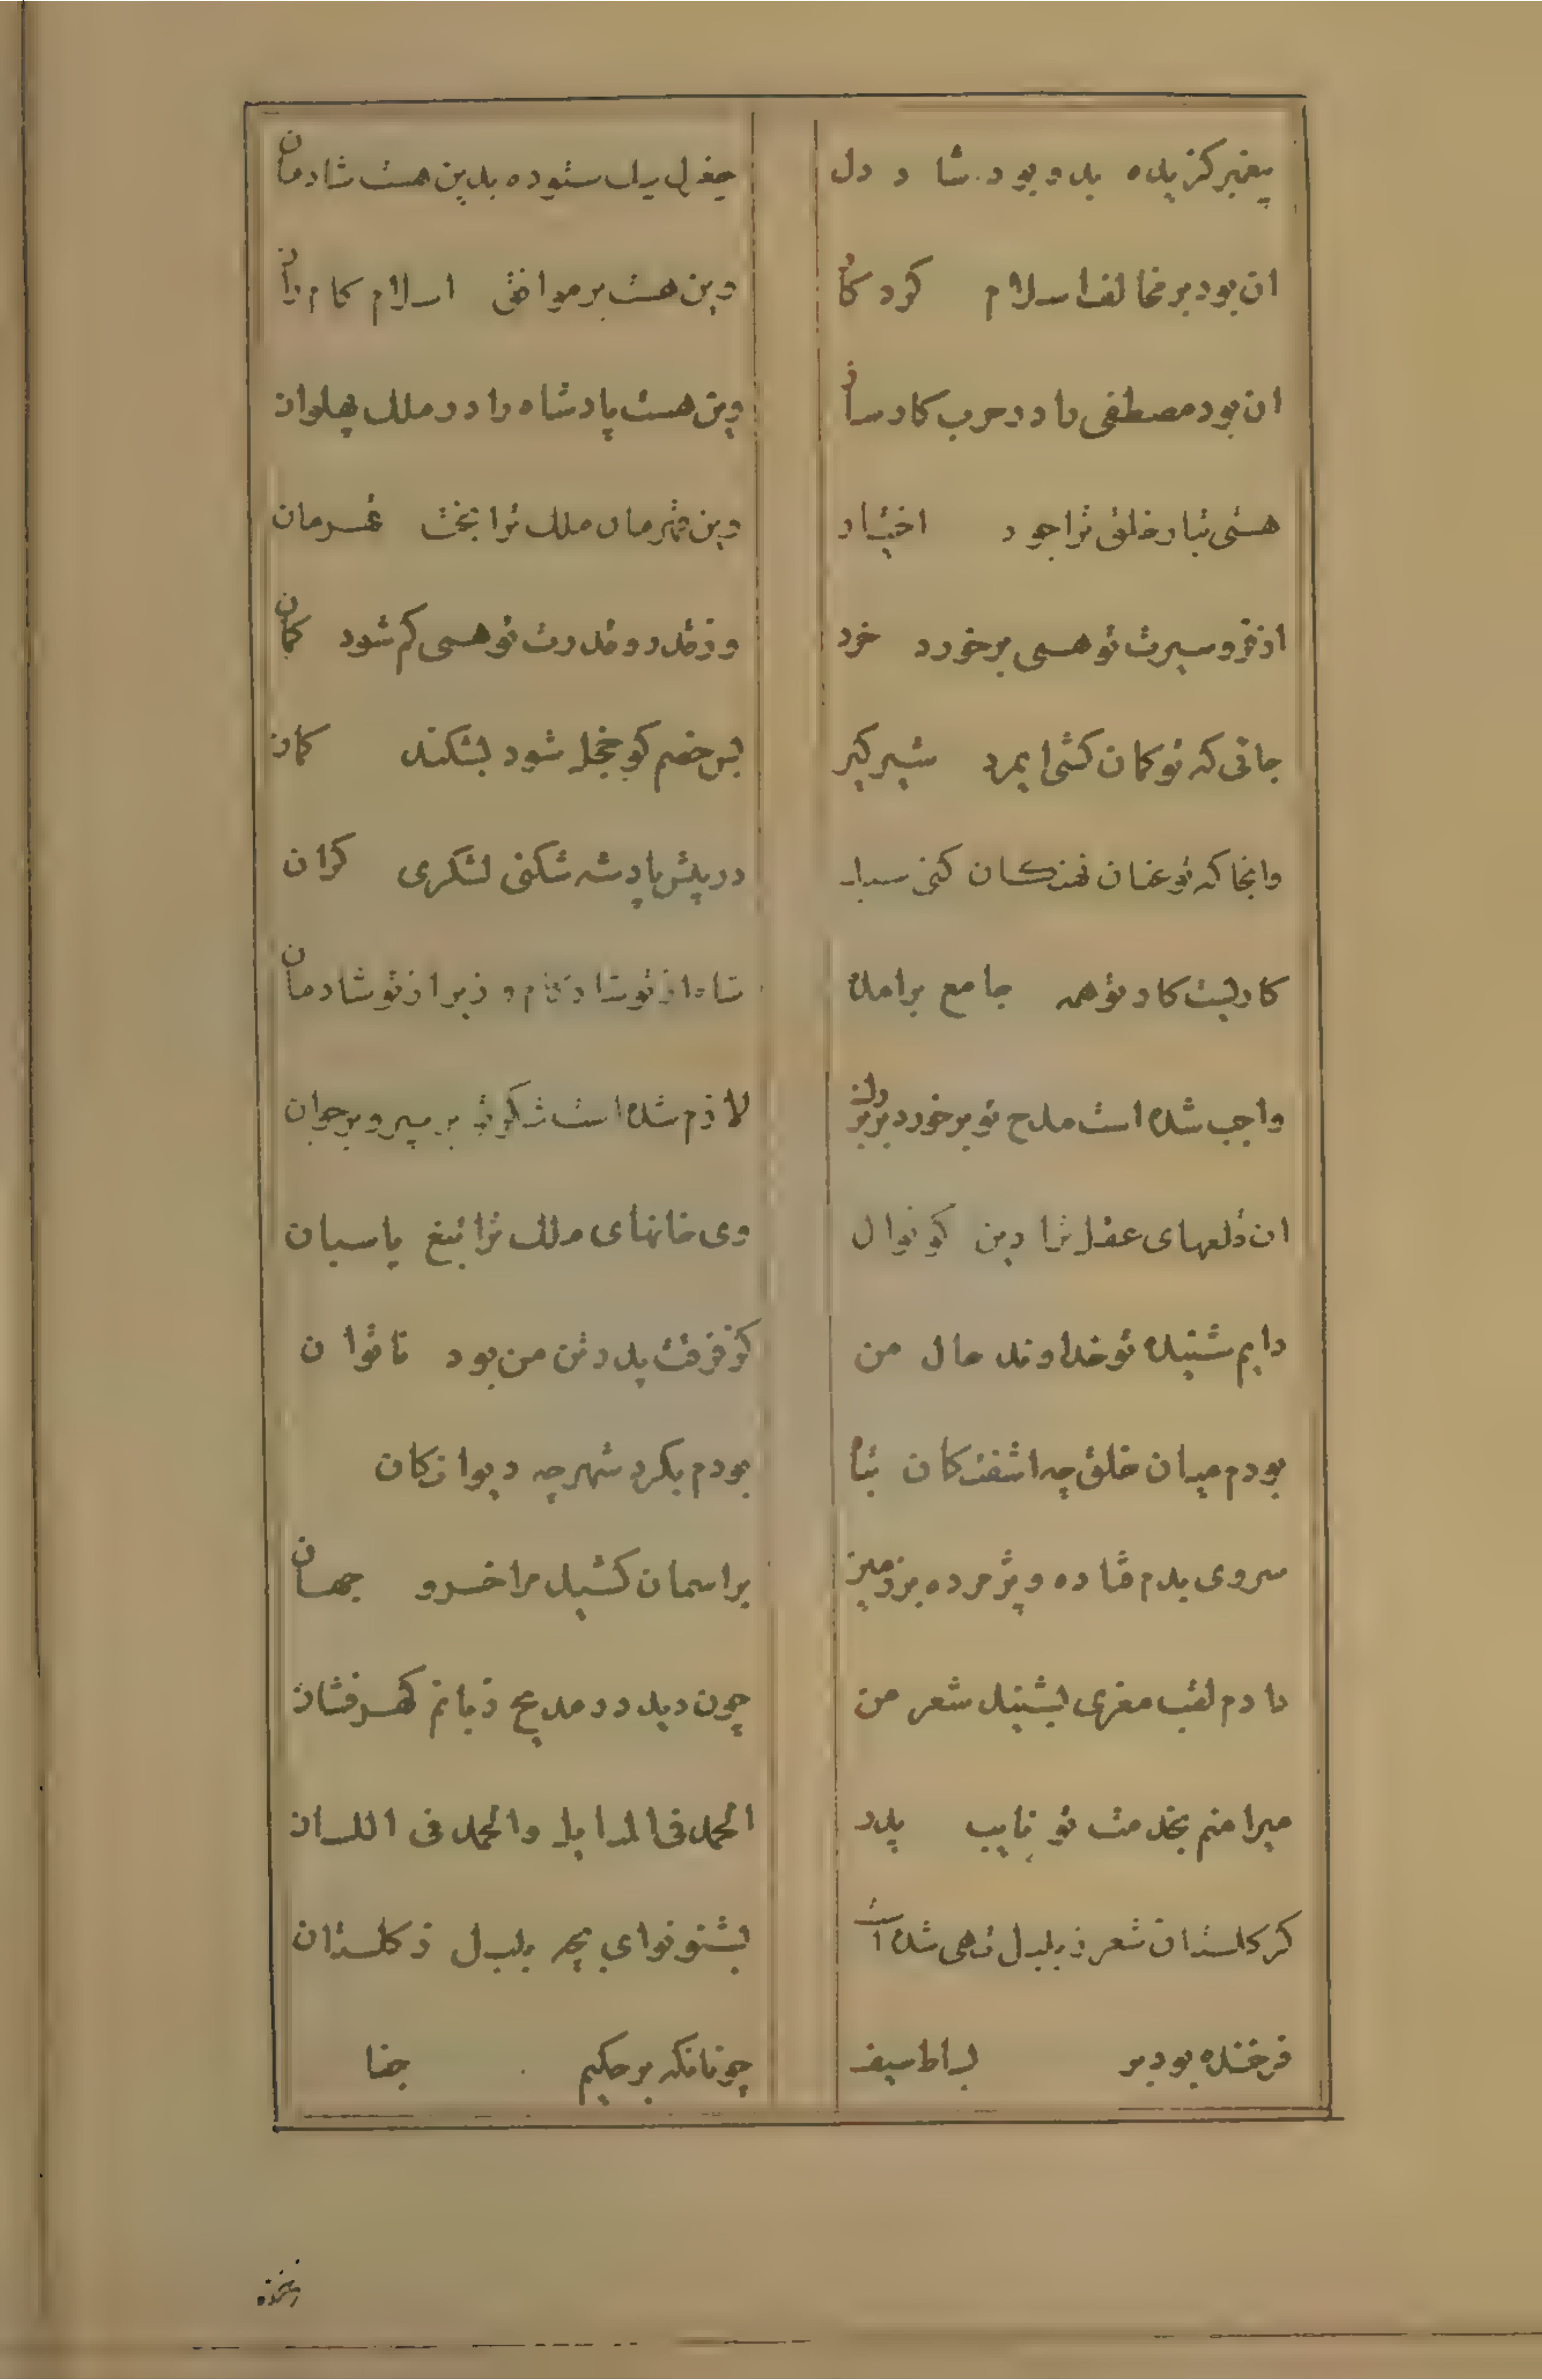 پیغمبر کزیده بدو بود شاد دل
جغری بیک ستوده بدین هست شادمان
ان بود بر مخالف اسلام کرد کار
وین هست بر موافق اسلام کام ران
ان بود مصطفی را در حرب کارساز
وین هست پادشاه را در ملک پهلوان
هستی تبار خلق ترا جود اختیار
وین قهرمان ملک ترا بخت قهرمان
از فر و سیرت تو همی بر خورد خرد
وز قدر و قدرت تو همی کم شود کمان
جائی که تو کمان کشی ای مرد شیر کیر
بس خصم کو خجل شود بشکند کمان
وانجا که تو عنان فتدکان کنی سبک
در پیش پادشه شکنی لشکری کران
کاریست کار تو همه جامع برامده
شاه از تو شاد کام و وزیر از تو شادمان
واجب شده است مدح تو بر خورد و بر بزرک
لازم شده است شکر تو بر پیر و بر جوان
ان قلعهای عقل ترا دین کوتوال
وی خانهای ملک ترا تیغ پاسبان
دایم شنیده تو خداوند حال من
کز فرقت پدر تن من بود ناتوان
بودم میان خلق چه اشفتکان تباه
بودم بکرد شهر چه دیوانکان
سروی بدم فتاده و پژمرده بر زمین
بر اسمان کشید مرا خسرو جهان
دادم لقب معزی بشنید شعر من
چون دید در مدیح زبانم کهر فشان
میرا منم بخدمت تو نایب پدر
الحمد فی المدایل والحمد فی اللسان
کر کلستان شعر ز بلبل تهی شده است
بشنو نوای بچه بلبل ز کلستان
فرخنده بود بر بساط سیف
چونانکه بر حکیم جفا